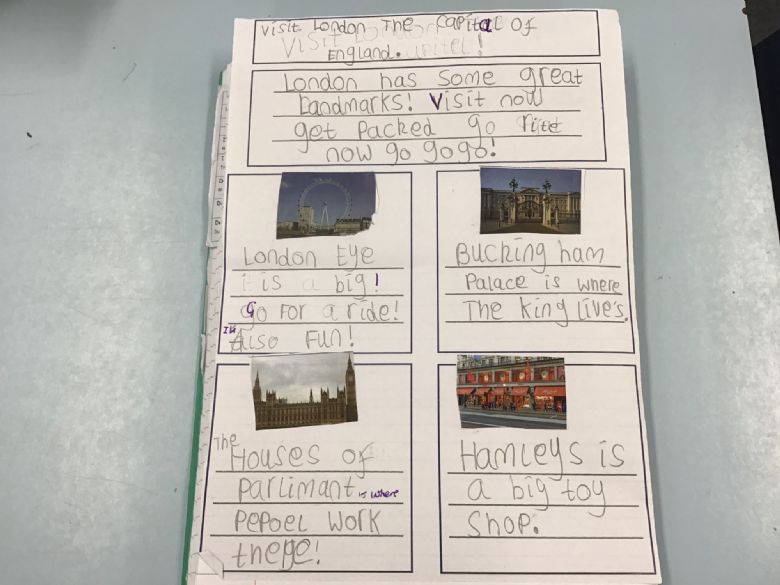 Visit London The Capital Of
England.!
London has some great
Landmarks! Visit now
get packed go rite
now go go go!
London Eye
is a big!
go for a ride!
Its Also Fun!
Bucking ham
Palace is where
The king live's.
The Houses of
Parlimant is where
pepoel work
there!
Hamleys is
a big toy
shop.